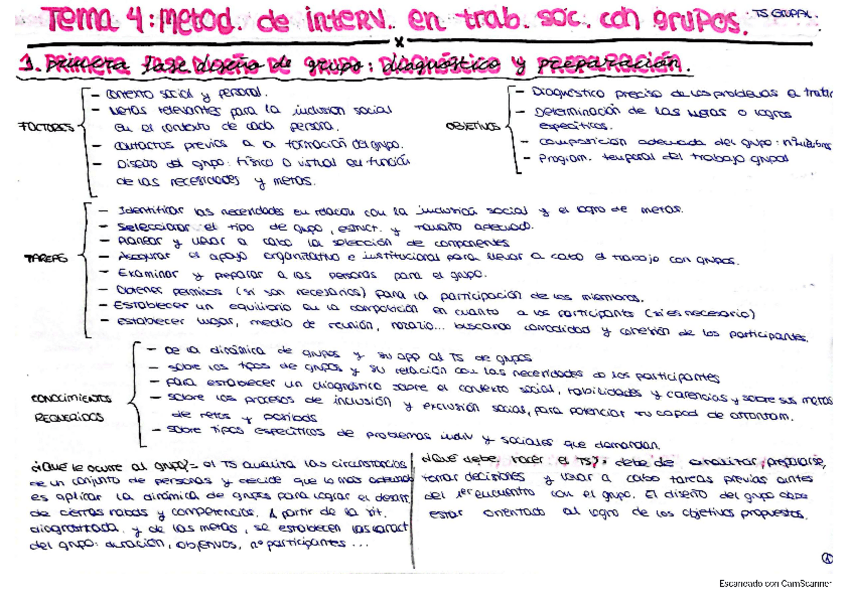 Tema 4: Metod. de interv. en trab. soc. con grupos.
TS GRUPAL.
1. Primera fase diseño de grupo: Diagnóstico y preparación.
FACTORES
- Contexto social y personal.
- Metas relevantes para la inclusión social
en el contexto de cada persona.
- Contactos previos a la formación del grupo.
- Diseño del grupo: físico o virtual en función
de las necesidades y metas.
OBJETIVOS
- Diagnóstico preciso de los problemas a tratar
- Determinación de las metas o logros
específicos.
- Composición adecuada del grupo: nº
- Program. temporal del trabajo grupal
TAREAS
- Identificar las necesidades en relación con la inclusión social y el logro de metas.
- Seleccionar el tipo de grupo, estruct. y tamaño adecuado.
- Planear y llevar a cabo la selección de componentes
- Asegurar el apoyo organizativo e institucional para llevar a cabo el trabajo con grupos.
- Examinar y preparar a las personas para el grupo.
- Obtener permisos (si son necesarios) para la participación de los miembros.
- Establecer un equilibrio en la composición en cuanto a los participantes (si es necesario)
- Establecer lugar, medio de reunión, horario... buscando comodidad y cohesión de los participantes.
CONOCIMIENTOS
REQUERIDOS
- De la dinámica de grupos y su app al TS de grupos
- Sobre los tipos de grupos y su relación con las necesidades de los participantes
- Para establecer un diagnóstico sobre el contexto social, habilidades y carencias y sobre sus metas
- Sobre los procesos de inclusión y exclusión social, para potenciar su capad de afrontam.
de retos y
- Sobre tipos específicos de problemas indiv y sociales que demandan.
¿Qué le ocurre al grupo? = el TS analiza las circunstancias
de un conjunto de personas y decide que lo más adecuado
es aplicar la dinámica de grupos para lograr el desarr.
de ciertas habds y competencias. A partir de la sit.
diagnosticada y de las metas, se establecen las caract
del grupo: duración, objetivos, nº participantes ...
¿Qué debe hacer el TS?: debe de analizar, prepararse,
tomar decisiones y llevar a cabo tareas previas antes
del 1er encuentro con el grupo. El diseño del grupo debe
estar orientado al logro de los objetivos propuestos.
Escaneado con CamScanner